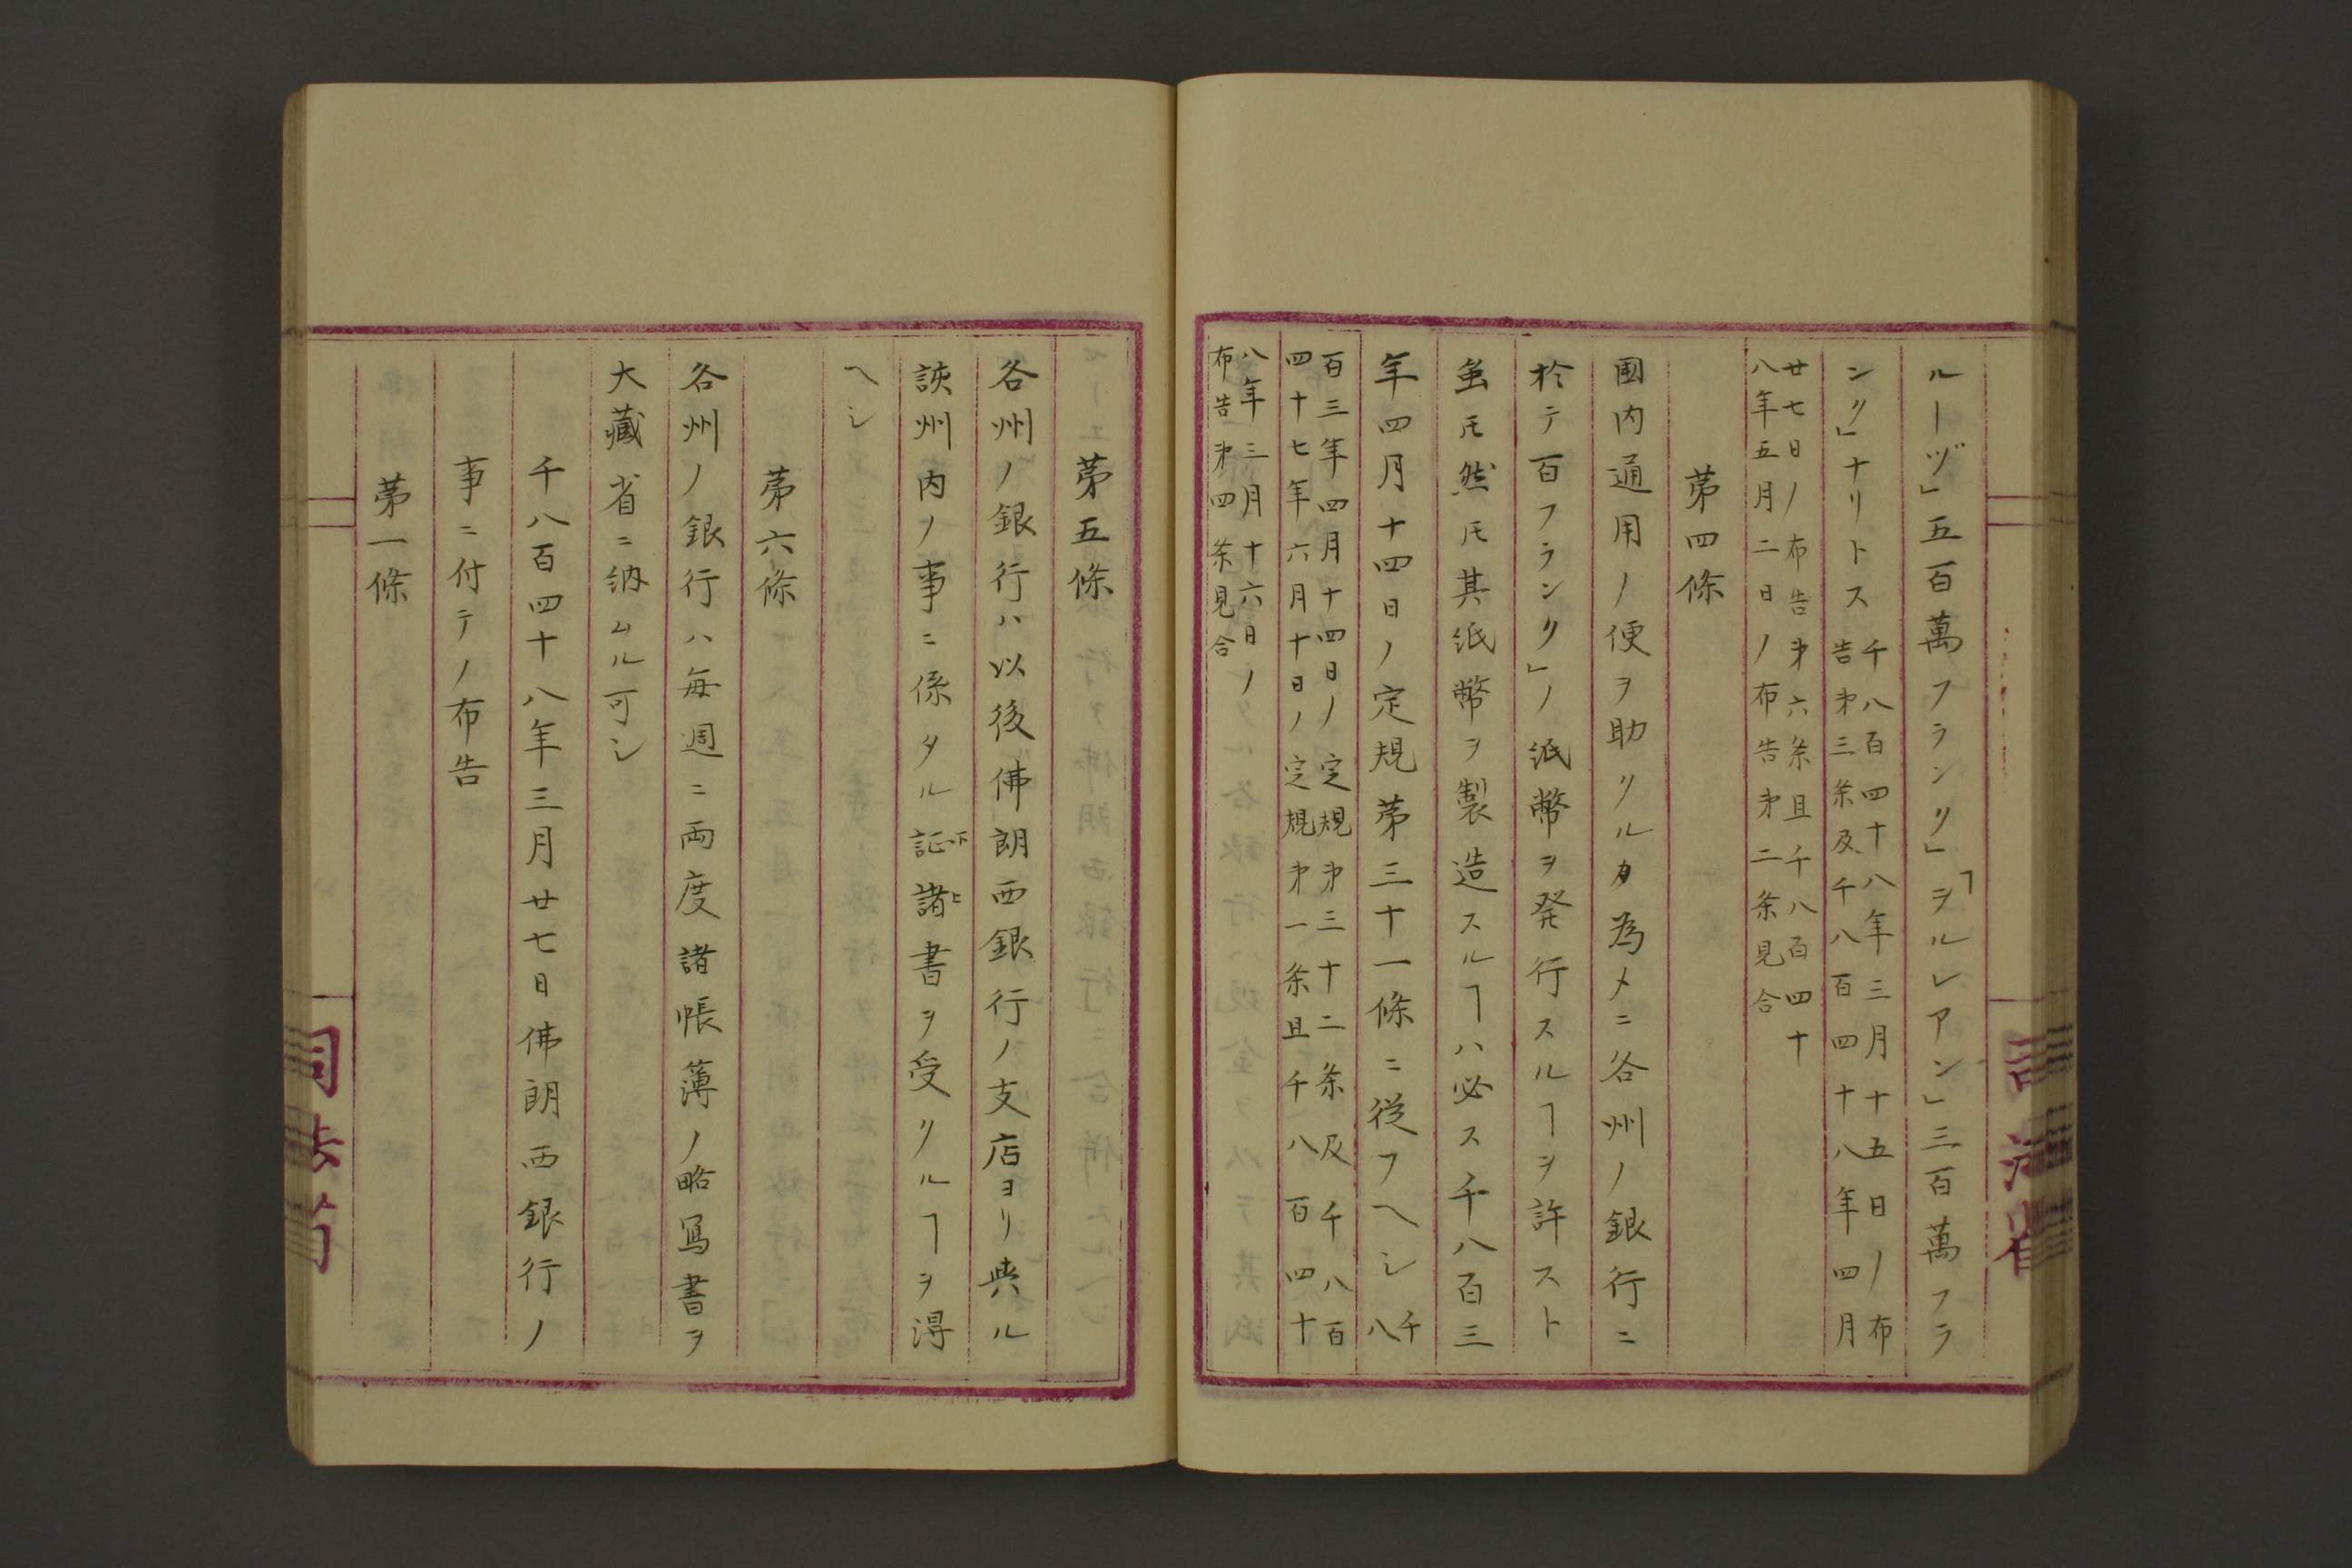 ルーヅ」五百萬フランク」「ヲルレアン」三百萬フラ
ンク」ナリトス
千八百四十八年三月十五日ノ布
告第三条及千八百四十八年四月
廿七日ノ布告第六条且千八百四十
八年五月二日ノ布告第二条見合
第四條
國内通用ノ便ヲ助クルカ為メニ各州ノ銀行ニ
於テ百フランク」ノ紙幣ヲ発行スルヿヲ許スト
虽𪜈然𪜈其紙幣ヲ製造スルヿハ必ス千八百三
年四月十四日ノ定規第三十一條ニ従フヘシ
千
八
百三年四月十四日ノ定規第三十二条及千八百
四十七年六月十日ノ定規第一条且千八百四十
八年三月十六日ノ
布告第四条見合
第五條
各州ノ銀行ハ以後佛朗西銀行ノ支店ヨリ與ル
該州内ノ事ニ係タル証下諸上書ヲ受クルヿヲ得
ヘシ
第六條
各州ノ銀行ハ毎週ニ両度諸帳薄ノ略寫書ヲ
大藏省ニ納ムル可シ
千八百四十八年三月廿七日佛朗西銀行ノ
事ニ付テノ布告
第一條
司法省